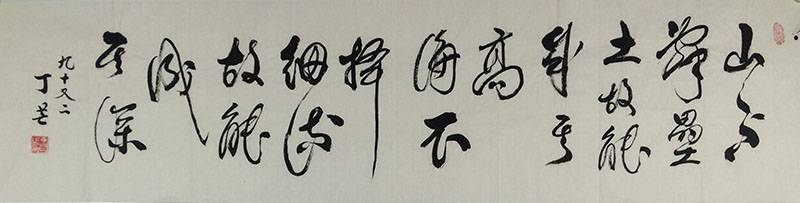 山不
辞壘
土故能
成其
高
海不
择
細流
故能
成
其深
九十又二
丁芒